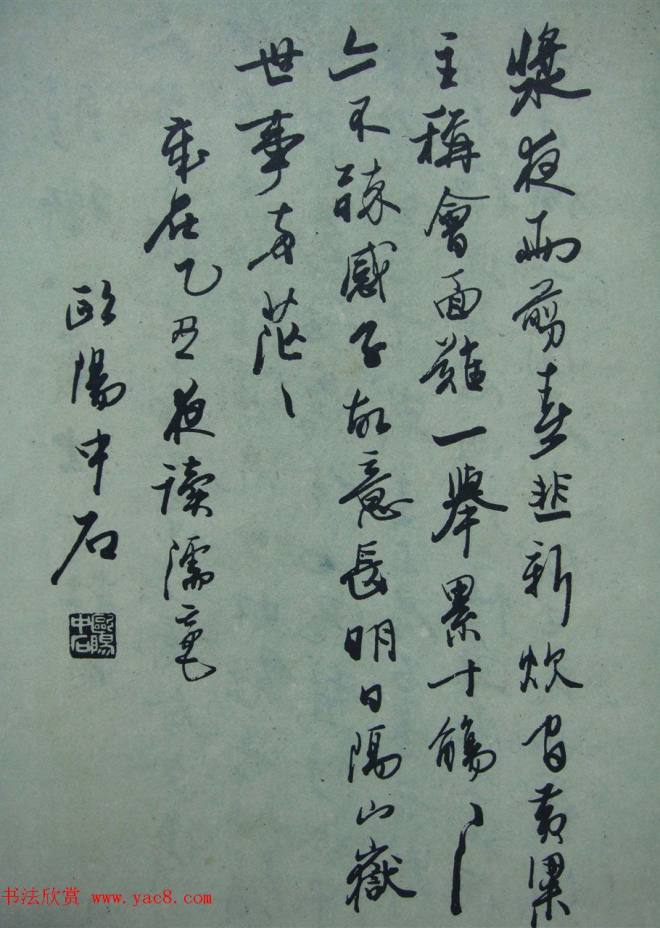 漿夜雨剪春韭新炊間黃粱
主稱會面難一舉累十觴十
亦不醉感子故意長明日隔山嶽
世事兩茫〻
歲在乙丑夜讀濡毫
歐陽中石
歐陽中石
书法欣赏 www.yac8.com